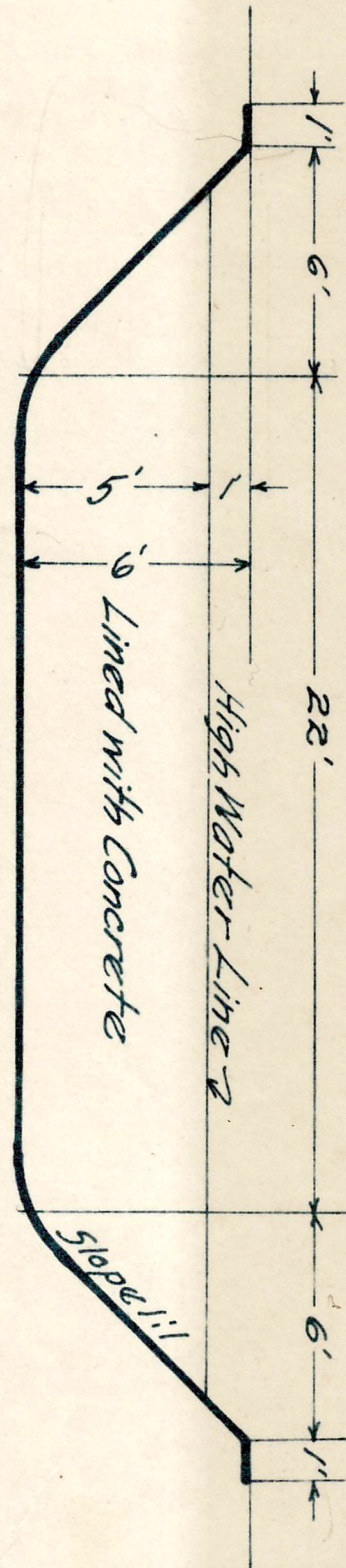 1' 6' 22' 6' 1'
1
5'
6'
High Water Line
Lined with Concrete
Slope 1:1